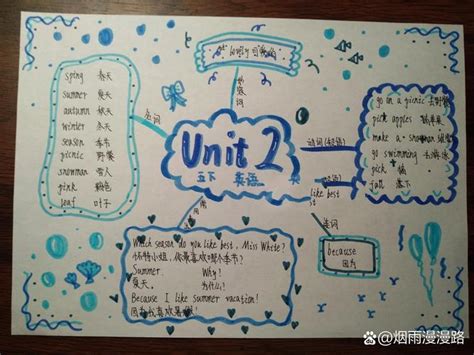 lovely 可爱的
形容词
名词
spring 春天
summer 夏天
autumn 秋天
winter 冬天
season 季节
picnic 野餐
snowman 雪人
pink 粉色
leaf 叶子
Unit 2
五下 英语
动词(短语)
go on a picnic 去野餐
pick apples 摘苹果
make a snowman 堆雪人
go swimming 去游泳
pick 摘
fall 落下
like best
连词
because
因为
Which season do you like best, Miss White?
怀特小姐，你最喜欢哪个季节?
Summer. Why?
夏天。 为什么?
Because I like summer vacation!
因为我喜欢暑假!
@烟雨漫漫路